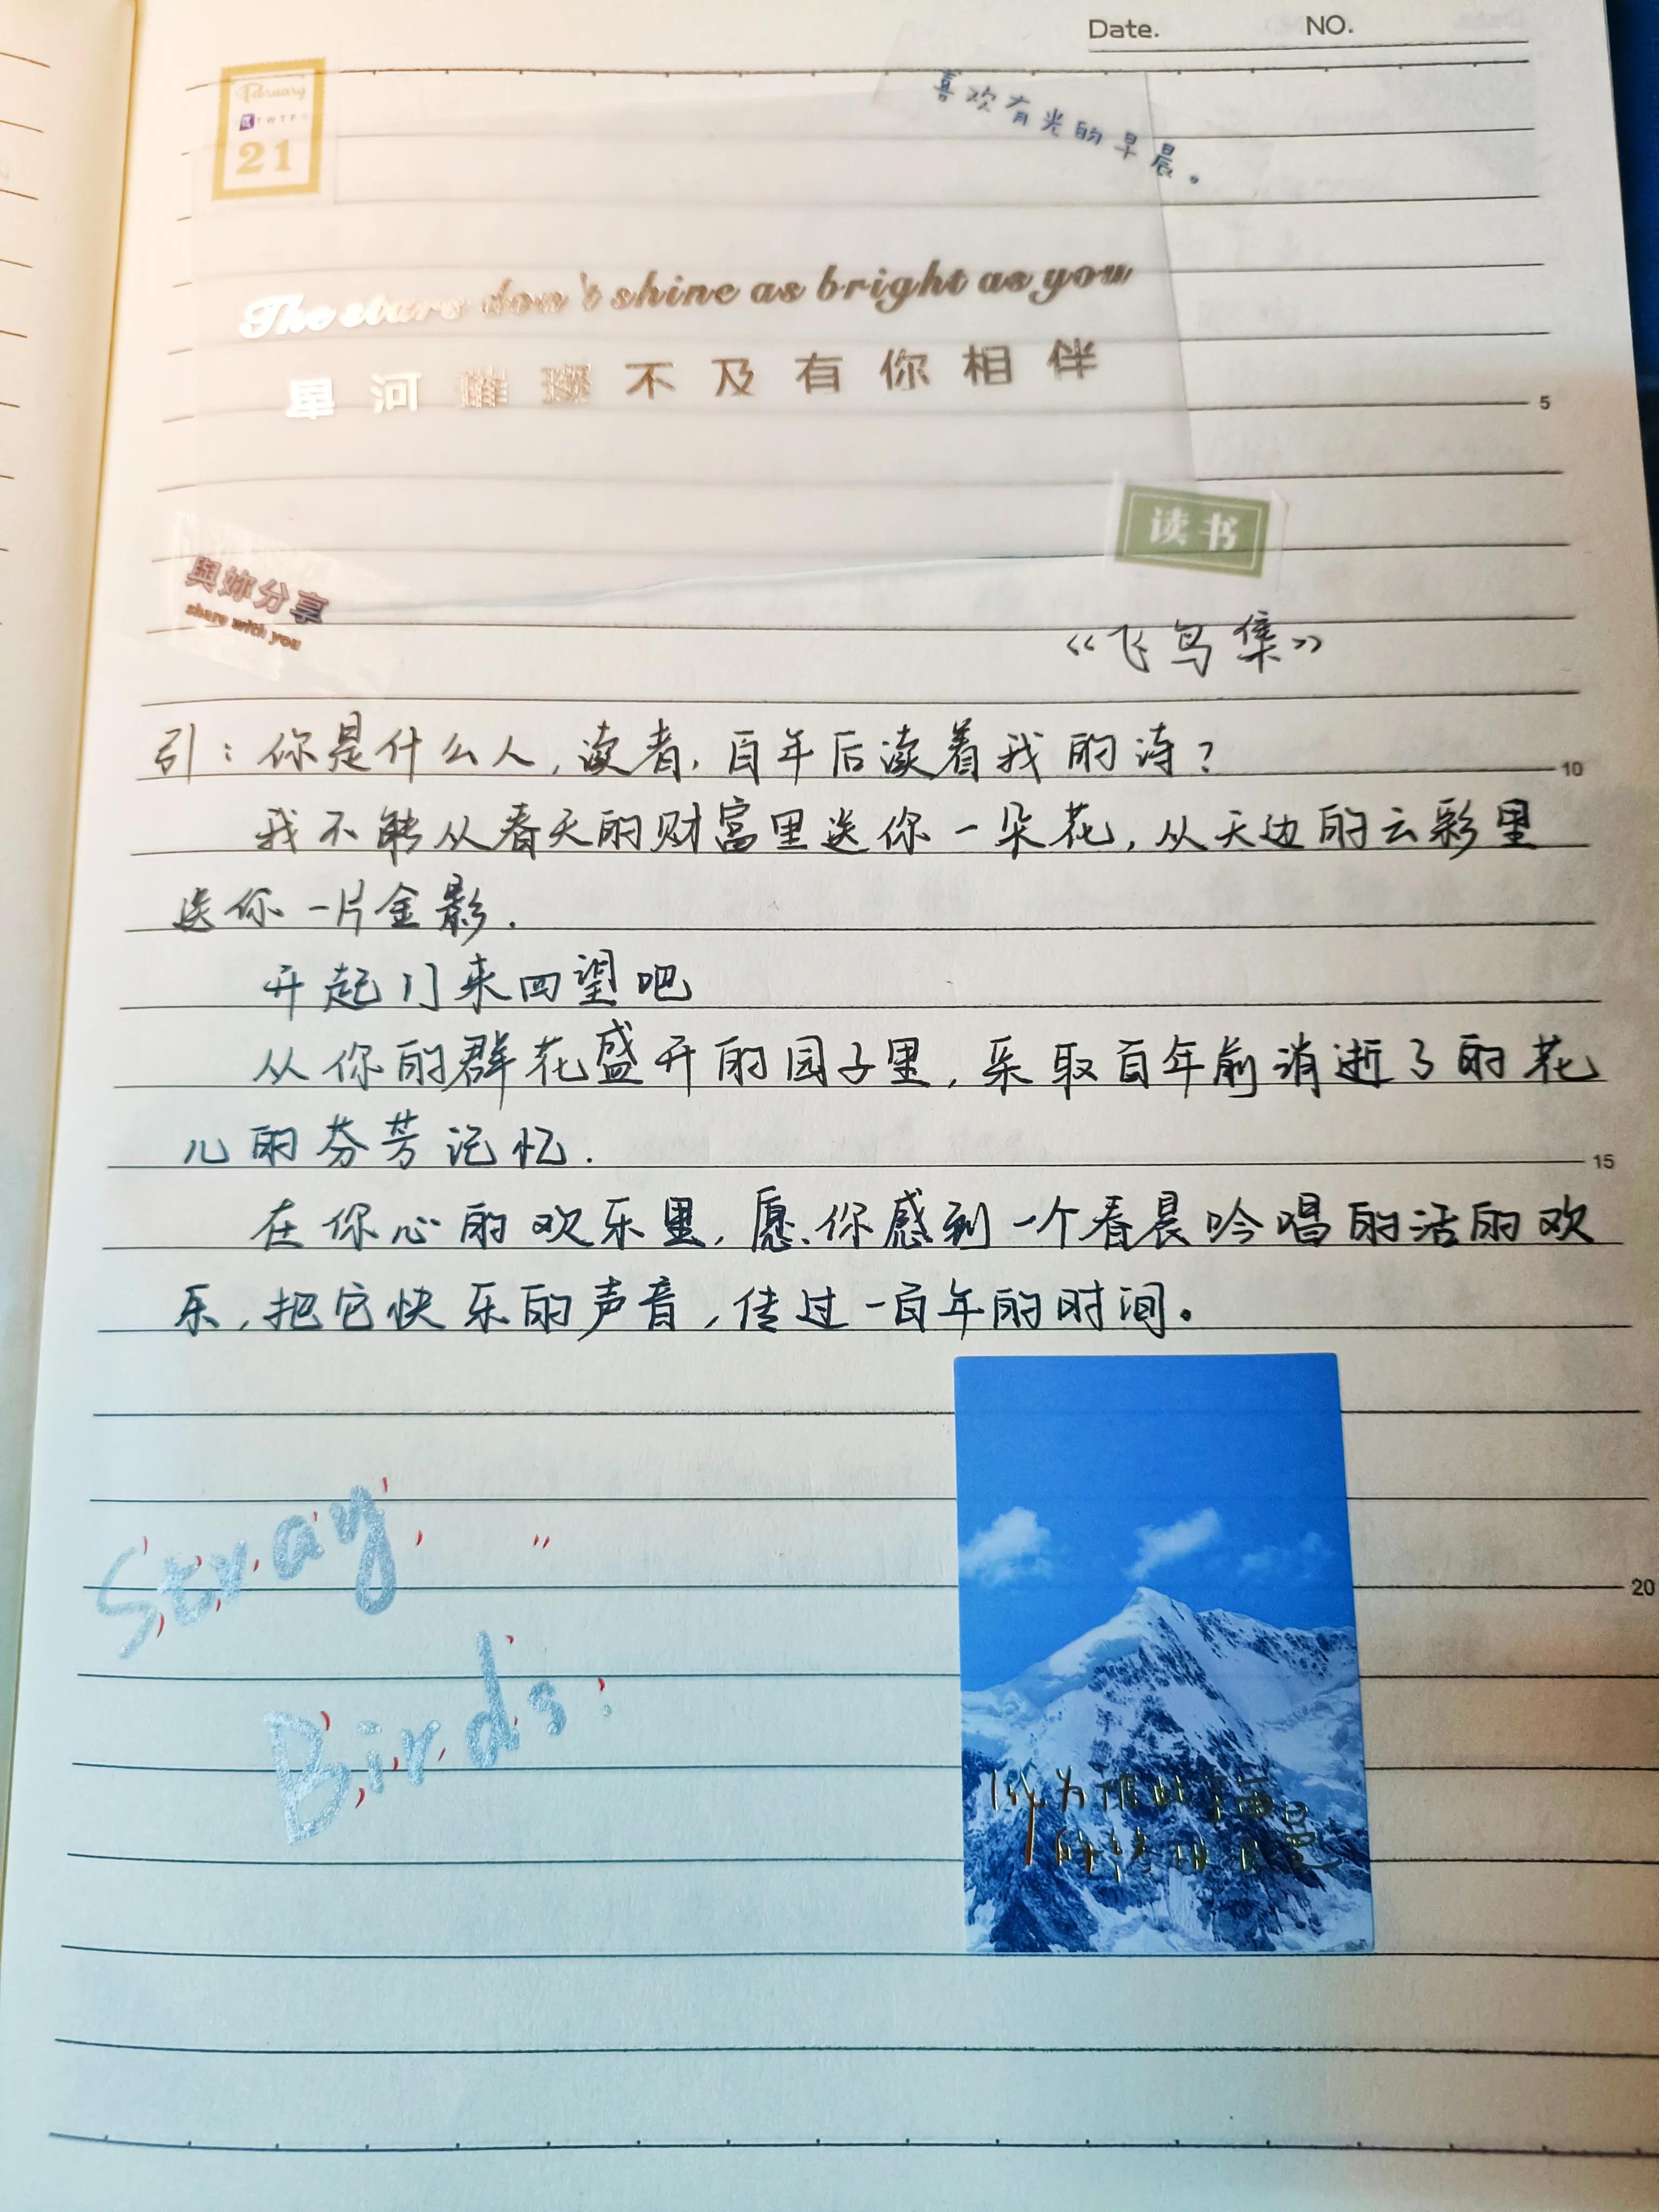 Date. NO.
February
T W T F
21
喜欢有光的早晨。
The stars don't shine as bright as you
星河璀璨不及有你相伴
5
读书
與妳分享
share with you
《飞鸟集》
引：你是什么人，读者，百年后读着我的诗？
10
我不能从春天的财富里送你一朵花，从天边的云彩里
送你一片金影．
开起门来四望吧
从你的群花盛开的园子里，采取百年前消逝了的花
儿的芬芳记忆．
15
在你心的欢乐里，愿你感到一个春晨吟唱的活的欢
乐，把它快乐的声音，传过一百年的时间。
Stray
20
Birds